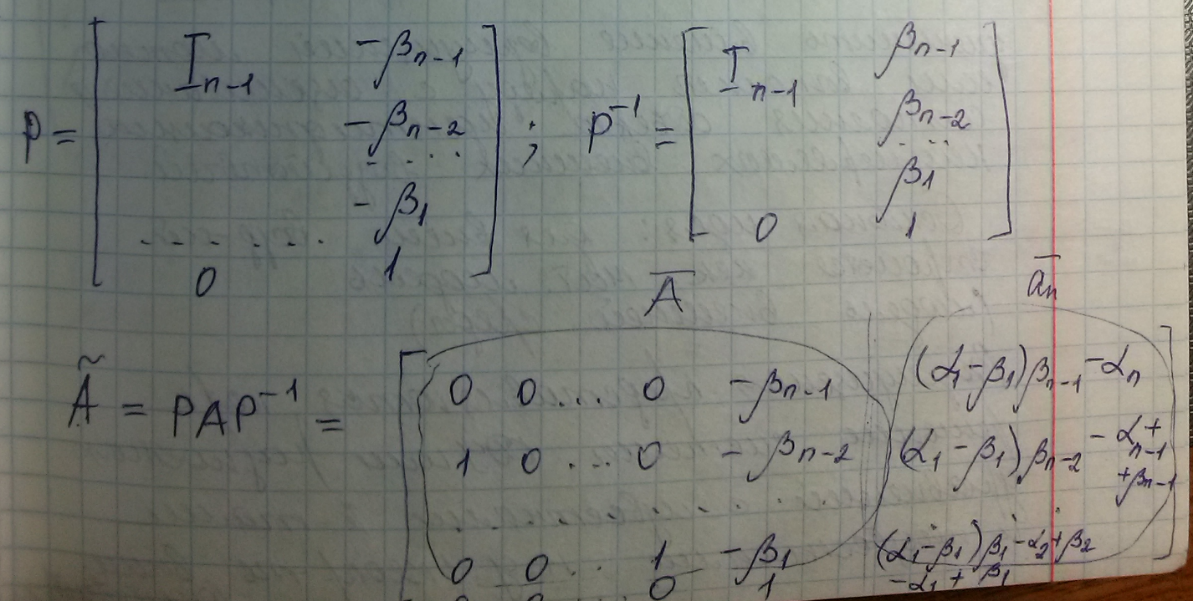 P = [ I_{n-1} -β_{n-1} ; P^{-1} = [ I_{n-1} β_{n-1}
-β_{n-2} β_{n-2}
- ... ...
-β_1 β_1
....... 0 1 ] 0 1 ]
Ā ā_n
Ã = PAP^{-1} = [ 0 0 ... 0 -β_{n-1} (α_1-β_1)β_{n-1}-α_n
1 0 ... 0 -β_{n-2} (α_1-β_1)β_{n-2}-α_{n-1}+
+β_{n-1}
. . . . . . . . . .
0 0 .. 1 -β_1 (α_1-β_1)β_1-α_2+β_2
0 1 -α_1+β_1 ]